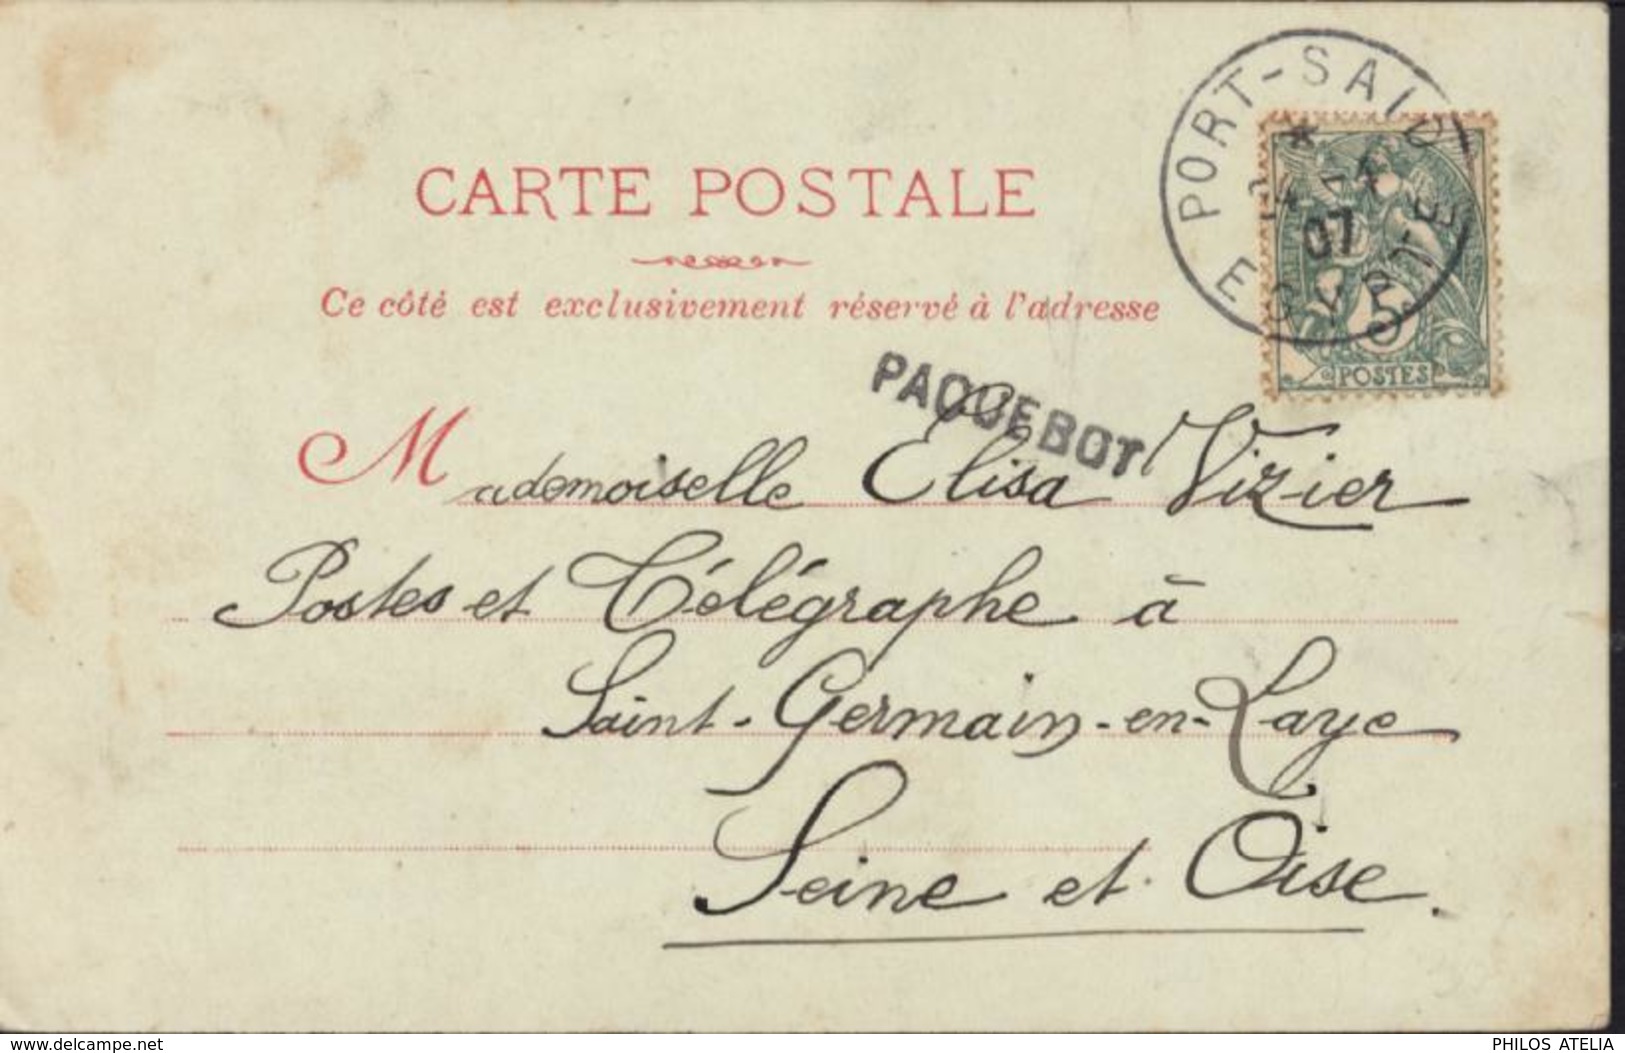 PORT-SAID
07
EGYPTE
5
POSTES
CARTE POSTALE
Ce côté est exclusivement réservé à l'adresse
PAQUEBOT
Mademoiselle Elisa Vizier
Postes et Télégraphe à
Saint-Germain-en-Laye
Seine et Oise.
www.delcampe.net
PHILOS ATELIA